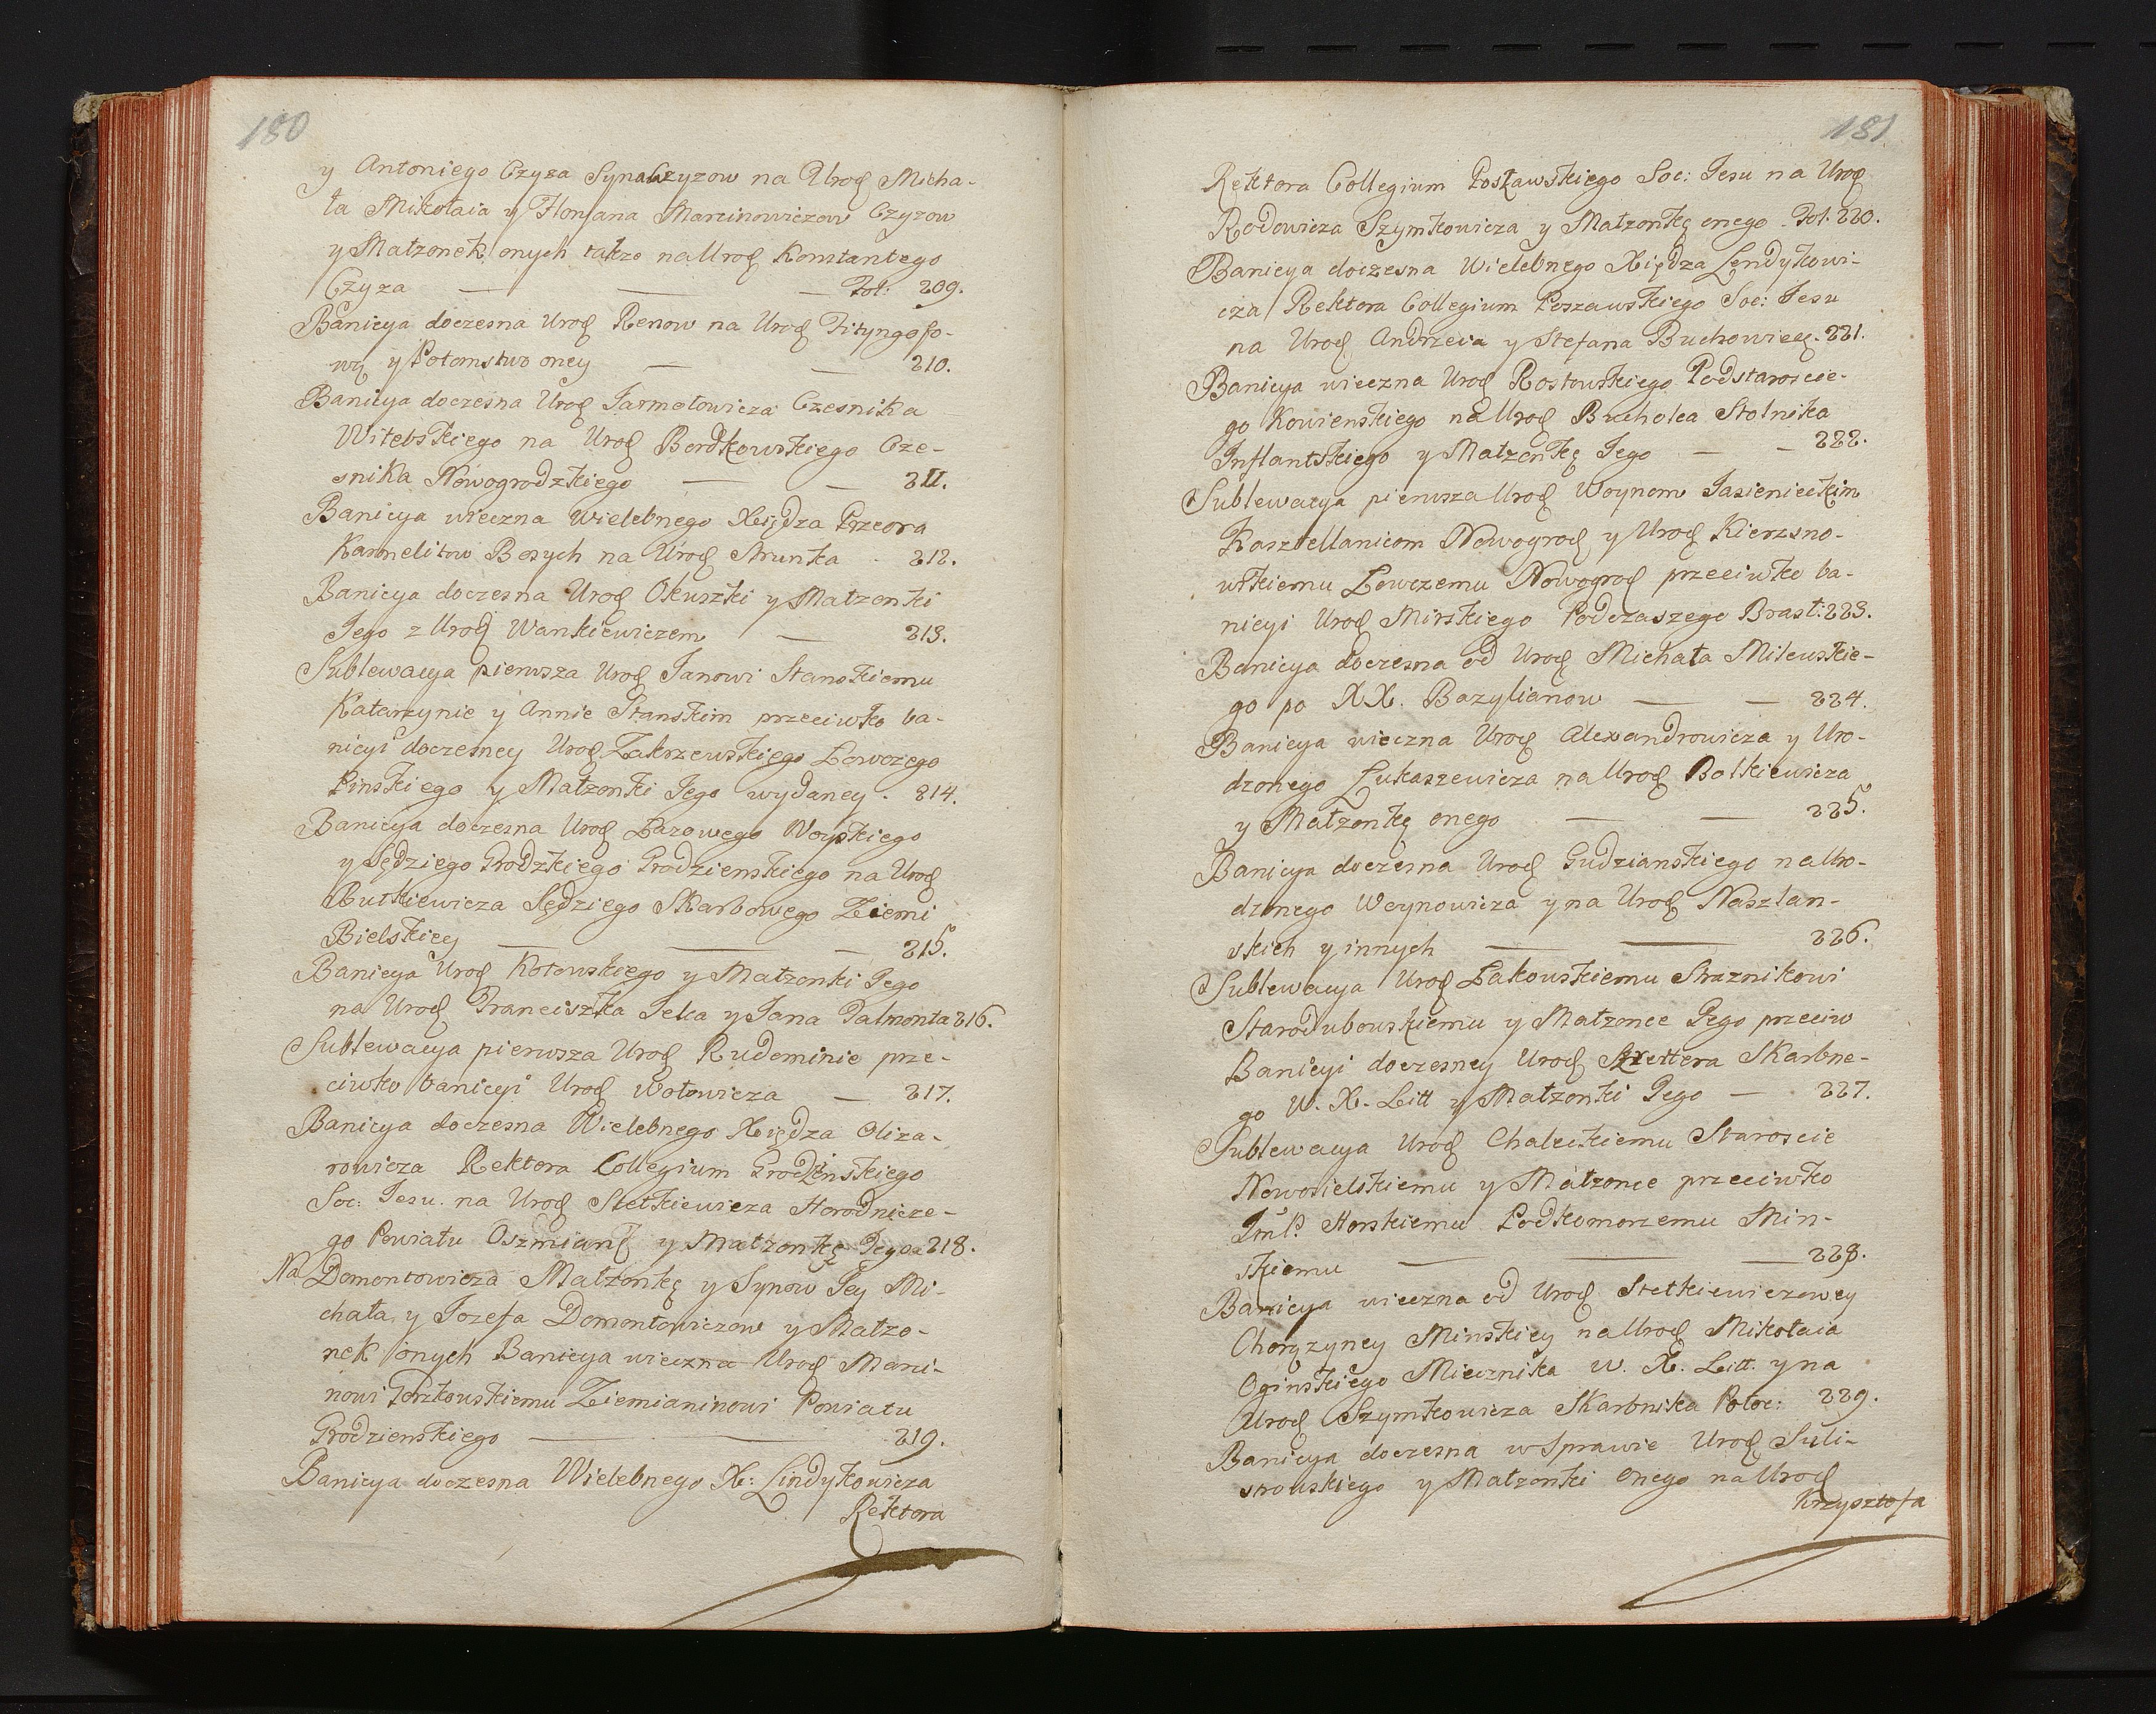 180
y Antoniego Czyza Syna Czyzow na Urod Micha-
ła Mikołaia y Floryana Marcinowiczow Czyzow
y Małzonek onych także na Urod Konstantego
Czyza — — — Fol: 209.
Banicya doczesna Urod Renow na Urod Fityngofo-
wę y Potomstwo oney — — 210.
Banicya doczesna Urod Jarmołowicza Czesnika
Witebskiego na Urod Bordkowskiego Cze-
snika Nowogrodzkiego — — 211.
Banicya wieczna Wielebnego Xiędza Przeora
Karmelitow Bosych na Urod Strunka - 212.
Banicya doczesna Urod Okuszki y Małzonki
Jego z Urod Wankiewiczem — 213.
Sublewacya pierwsza Urod Janowi Stanskiemu
Katarzynie y Annie Stanskim przeciwko ba-
nicyi doczesney Urod Zakrzewskiego Łowczego
Pinskiego y Małzonki Jego wydaney . 214.
Banicya doczesna Urod Łazowego Woyskiego
y Sędziego Grodzkiego Grodzienskiego na Urod
Butkiewicza Sędziego Skarbowego Ziemi
Bielskiey — — — 215.
Banicya Urod Kotowskiego y Małzonki Jego
na Urod Franciszka Jelca y Jana Dalmonta 216.
Sublewacya pierwsza Urod Rudominie prze-
ciwko banicyi Urod Wołowicza — 217.
Banicya doczesna Wielebnego Xiędza Oliza-
rowicza Rektora Collegium Grodzińskiego
Soc: Jesu. na Urod Stetkiewicza Horodnicze-
go Powiatu Oszmiand y Małzonkę Jego 218.
Na Domontowicza Małzonkę y Synow Jey Mi-
chała y Jozefa Domontowiczow y Małzo-
nek onych Banicya wieczna Urod Marci-
nowi Gorzkowskiemu Ziemianinowi Powiatu
Grodzienskiego — — 219.
Banicya doczesna Wielebnego X: Lindykowicza
Rektora
181
Rektora Collegium Poszawskiego Soc: Jesu na Urod
Rodowicza Szymkowicza y Małzonkę onego . Fol. 220.
Banicya doczesna Wielebnego Xiędza Lendykowi-
cza Rektora Collegium Poszawskiego Soc: Jesu
na Urod Andrzeia y Stefana Buchowiecd. 221.
Banicya wieczna Urod Rostowskiego Podstaroscie-
go Kowienskiego na Urod Bucholca Stolnika
Inflantskiego y Małzonkę Jego — - 222.
Sublewacya pierwsza Urod Woynom Jasienieckim
Kasztellanicom Nowogrod y Urod Kierzsno-
wskiemu Łowczemu Nowogrod przeciwko ba-
nicyi Urod Mirskiego Podczaszego Brasł: 223.
Banicya doczesna od Urod Michała Milewskie-
go po XX. Bazylianow — — 224.
Banicya wieczna Urod Alexandrowicza y Uro-
dzonego Łukaszewicza na Urod Bołkiewicza
y Małzonkę onego — — 225.
Banicya doczesna Urod Gudzianskiego na Uro-
dzonego Woynowicza y na Urod Naszlan-
skich y innych — — 226.
Sublewacya Urod Łakowskiemu Straznikowi
Starodubowskiemu y Małzonce Jego przeciw
Banicyi doczesney Urod Szrettera Skarbne-
go W. X. Litt y Małzonki Jego — 227.
Sublewacya Urod Chaleckiemu Staroscie
Nowosielskiemu y Małzonce przeciwko
ImP. Horskiemu Podkomorzemu Min-
skiemu — — — 228.
Banicya wieczna od Urod Stetkiewiczowey
Chorązyney Minskiey na Urod Mikołaia
Oginskiego Miecznika W. X. Litt. y na
Urod Szymkowicza Skarbnika Połoc: 229.
Banicya doczesna w Sprawie Urod Suli-
strowskiego y Małzonki onego na Urod
Krzysztofa